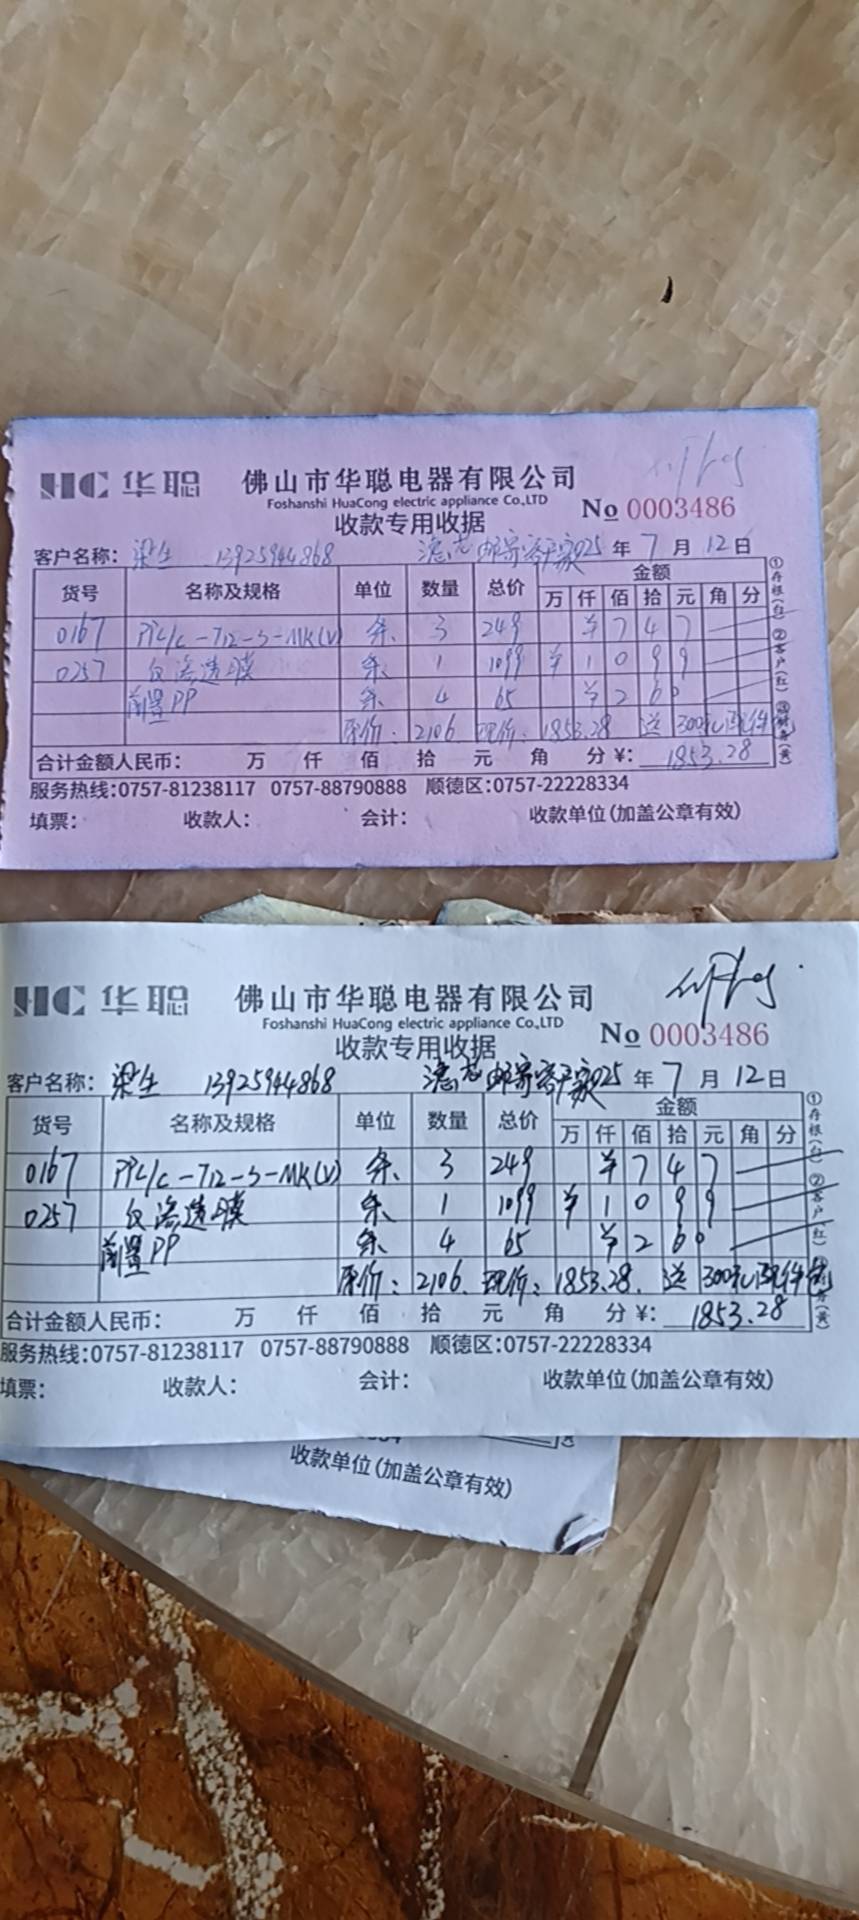 HC 华聪 佛山市华聪电器有限公司
Foshanshi HuaCong electric appliance Co.,LTD
收款专用收据 No 0003486
客户名称: 梁生 13925944868 滤芯邮寄客户家 025 年 7 月 12 日
货号 名称及规格 单位 数量 总价 金额
万 仟 佰 拾 元 角 分
0167 PPC/C-T12-S-MK(V) 条 3 249 ¥ 7 4 7
0257 反渗透膜 条 1 1099 ¥ 1 0 9 9
前置PP 条 4 65 ¥ 2 6 0
原价: 2106 现价: 1853.28 送 300元配件包
合计金额人民币: 万 仟 佰 拾 元 角 分 ¥: 1853.28
①存根(白) ②客户(红) ③财务(黄)
服务热线:0757-81238117 0757-88790888 顺德区:0757-22228334
填票: 收款人: 会计: 收款单位(加盖公章有效)
HC 华聪 佛山市华聪电器有限公司
Foshanshi HuaCong electric appliance Co.,LTD
收款专用收据 No 0003486
客户名称: 梁生 13925944868 滤芯邮寄客户家 025 年 7 月 12 日
货号 名称及规格 单位 数量 总价 金额
万 仟 佰 拾 元 角 分
0167 PPC/C-T12-S-MK(V) 条 3 249 ¥ 7 4 7
0257 反渗透膜 条 1 1099 ¥ 1 0 9 9
前置PP 条 4 65 ¥ 2 6 0
原价: 2106. 现价: 1853.28. 送 300元配件包
合计金额人民币: 万 仟 佰 拾 元 角 分 ¥: 1853.28
服务热线:0757-81238117 0757-88790888 顺德区:0757-22228334
填票: 收款人: 会计: 收款单位(加盖公章有效)
收款单位(加盖公章有效)